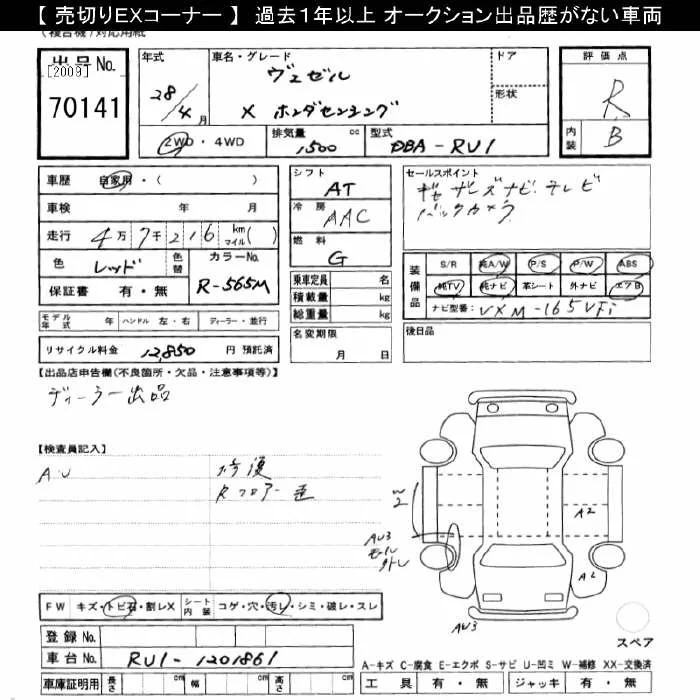 【 売切りEXコーナー 】 過去1年以上 オークション出品歴がない車両
出品号No.
[2009]
70141
年式
28/4月
車名・グレード
ヴェゼル
X ホンダセンシング
ドア
形状
2WD・4WD
排気量
1500 cc
型式
DBA-RU1
評価点
R
内装 B
車歴 自家用・( )
車検 年 月
走行 4万7千216 km マイル( )
色 レッド 色替
カラーNo. R-565M
保証書 有・無
シフト AT
冷房 AAC
燃料 G
乗車定員 名
積載量 kg
総重量 kg
セールスポイント
ナビ テレビ
バックカメラ
装備品
S/R 純A/W P/S P/W ABS
純TV 純ナビ 革シート 外ナビ エアB
ナビ型番: VXM-165VFi
モデル年式 年 ハンドル 左・右 ディーラー・並行
名変期限 月 日
後日品
リサイクル料金 12,850 円 預託済
【出品店申告欄(不良箇所・欠品・注意事項等)】
ディーラー出品
【検査員記入】
A・U
修復
Rフロアー歪
W2
AU3
モール
外レ
A2
A2
AU3
スペア
FW キズ・トビ石・割レX シート内装 コゲ・穴・汚レ・シミ・破レ・スレ
登録No.
車台No. RU1-1201861
車庫証明用 長さ cm 幅 cm 高さ cm
A-キズ C-腐食 E-エクボ S-サビ U-凹ミ W-補修 XX-交換済
工具 有・無 ジャッキ 有・無